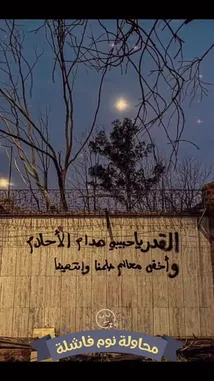 القدر ياحبيبي هدام الأحلام
وأخفى معالم حلمنا وإنتهينا
محاولة نوم فاشلة